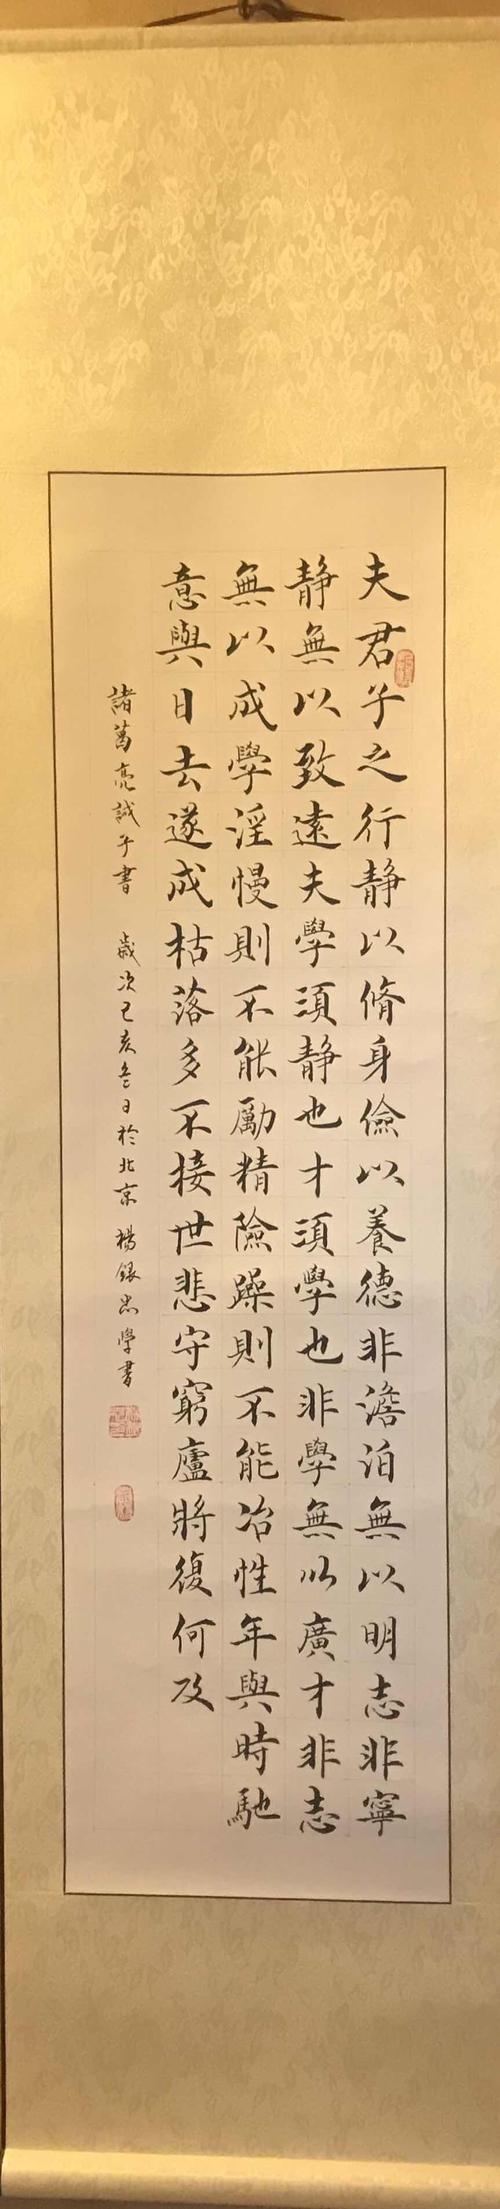 夫君子之行静以脩身儉以養德非澹泊無以明志非寧
静無以致遠夫學須静也才須學也非學無以廣才非志
無以成學淫慢則不能勵精險躁則不能冶性年與時馳
意與日去遂成枯落多不接世悲守窮廬將復何及
諸葛亮誡子書 歲次己亥冬日於北京 楊銀忠學書